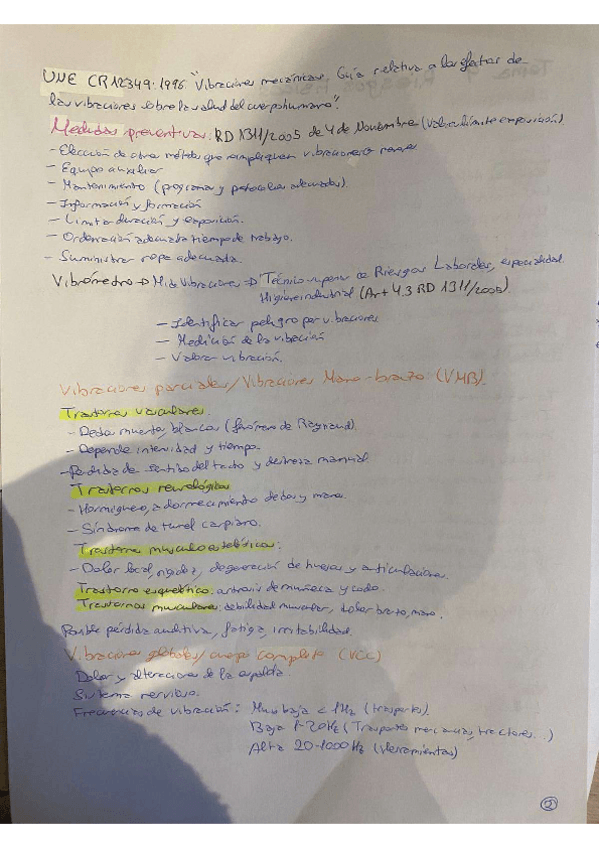 UNE CR 12349:1996 "Vibraciones mecánicas. Guía relativa a los efectos de
las vibraciones sobre la salud del cuerpo humano".
Medidas preventivas: RD 1311/2005 de 4 de Noviembre (Valores límite exposición)
- Elección de otros métodos que no impliquen vibraciones
- Equipo auxiliar
- Mantenimiento (programas y protocolos adecuados).
- Información y formación
- Limitar duración y exposición.
- Ordenación adecuada tiempo de trabajo.
- Suministrar ropa adecuada.
Vibrómetro → Mide Vibraciones → Técnico superior de Riesgos Laborales, especialidad
Higiene industrial (Art 4.3 RD 1311/2005).
- Identificar peligro por vibraciones
- Medición de la vibración
- Valorar vibración.
Vibraciones parciales/Vibraciones Mano-brazo (VMB).
Trastornos vasculares.
- Dedo muerto, blanco (fenómeno de Raynaud).
- Depende intensidad y tiempo.
- Pérdida de sentido del tacto y destreza manual.
Trastornos neurológicos
- Hormigueo, adormecimiento dedos y mano.
- Síndrome de túnel carpiano.
Trastornos musculoesqueléticos:
- Dolor local, rigidez, degeneración de huesos y articulaciones.
Trastorno esquelético: artrosis de muñeca y codo.
Trastornos musculares: debilidad muscular, dolor brazo, mano.
Posible pérdida auditiva, fatiga, irritabilidad.
Vibraciones globales/cuerpo completo (VCC)
Dolor y alteraciones de la espalda.
Sistema nervioso.
Frecuencias de vibración: Muy baja < 1Hz (transporte).
Baja 1-20Hz (Transportes mercancías, tractores..)
Alta 20-1000 Hz (Herramientas)
2